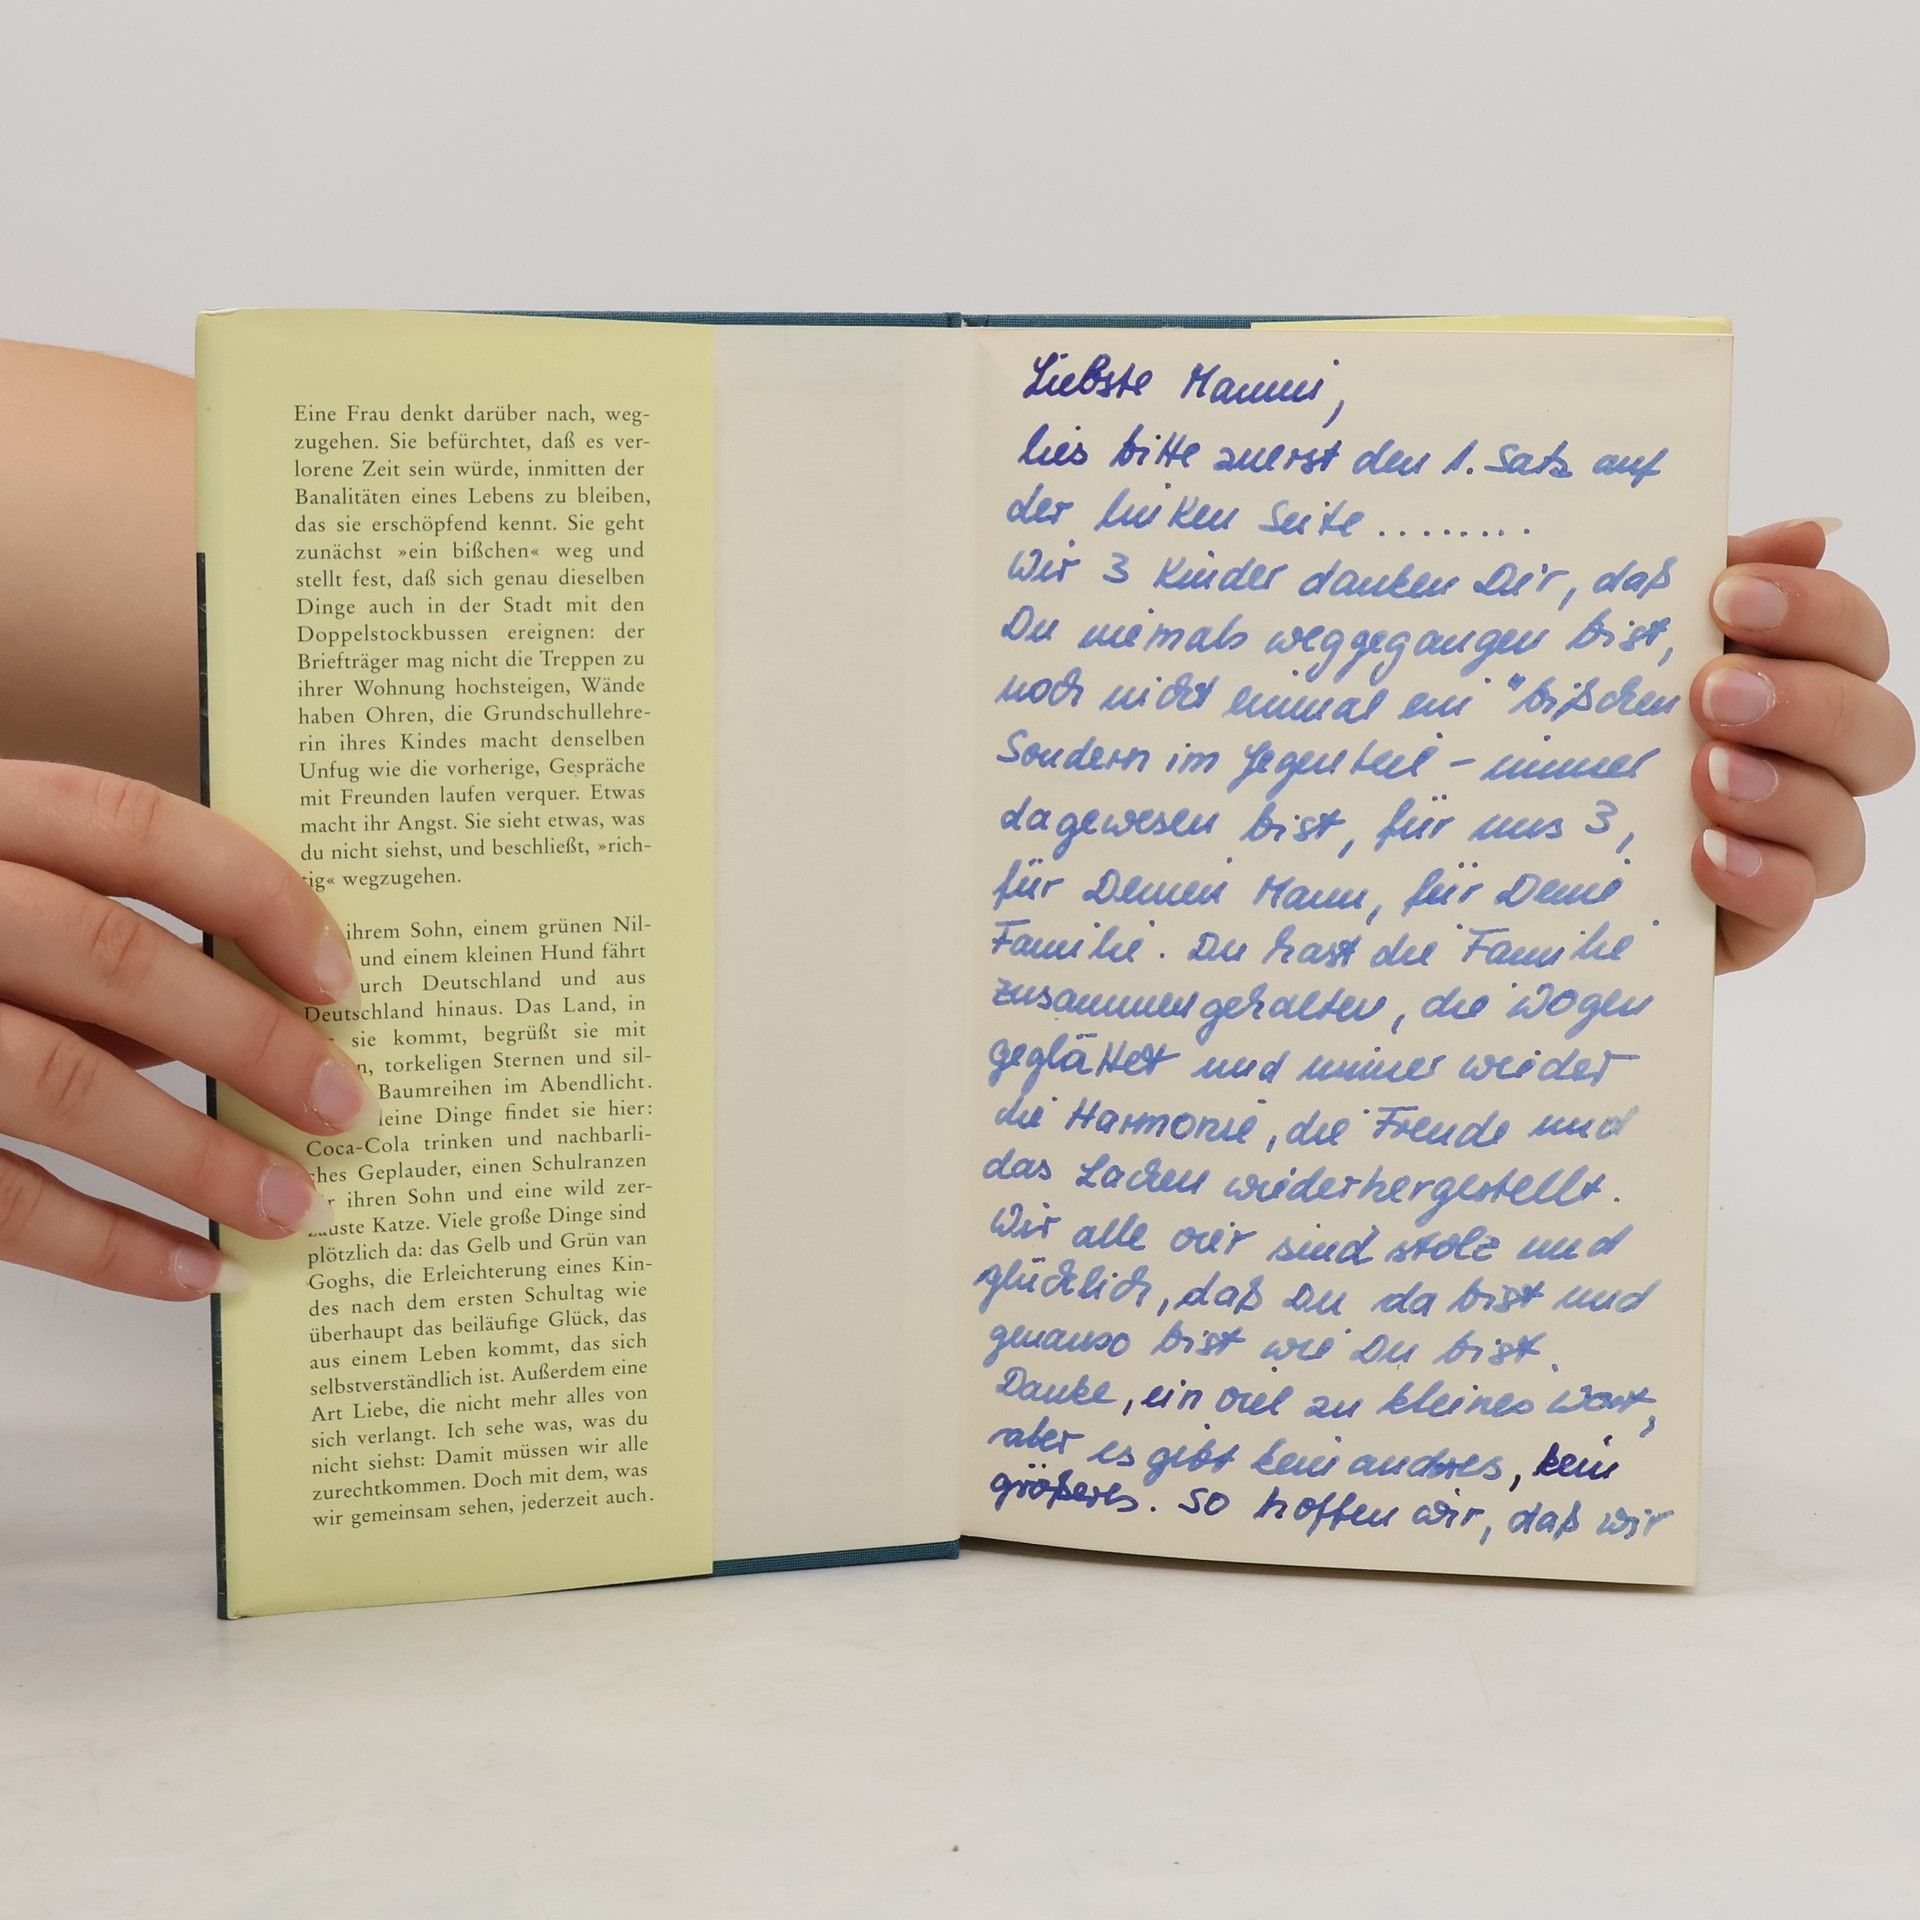 Eine Frau denkt darüber nach, weg-
zugehen. Sie befürchtet, daß es ver-
lorene Zeit sein würde, inmitten der
Banalitäten eines Lebens zu bleiben,
das sie erschöpfend kennt. Sie geht
zunächst »ein bißchen« weg und
stellt fest, daß sich genau dieselben
Dinge auch in der Stadt mit den
Doppelstockbussen ereignen: der
Briefträger mag nicht die Treppen zu
ihrer Wohnung hochsteigen, Wände
haben Ohren, die Grundschullehre-
rin ihres Kindes macht denselben
Unfug wie die vorherige, Gespräche
mit Freunden laufen verquer. Etwas
macht ihr Angst. Sie sieht etwas, was
du nicht siehst, und beschließt, »rich-
tig« wegzugehen.
ihrem Sohn, einem grünen Nil-
und einem kleinen Hund fährt
urch Deutschland und aus
Deutschland hinaus. Das Land, in
sie kommt, begrüßt sie mit
n, torkeligen Sternen und sil-
Baumreihen im Abendlicht.
leine Dinge findet sie hier:
Coca-Cola trinken und nachbarli-
ches Geplauder, einen Schulranzen
r ihren Sohn und eine wild zer-
zauste Katze. Viele große Dinge sind
plötzlich da: das Gelb und Grün van
Goghs, die Erleichterung eines Kin-
des nach dem ersten Schultag wie
überhaupt das beiläufige Glück, das
aus einem Leben kommt, das sich
selbstverständlich ist. Außerdem eine
Art Liebe, die nicht mehr alles von
sich verlangt. Ich sehe was, was du
nicht siehst: Damit müssen wir alle
zurechtkommen. Doch mit dem, was
wir gemeinsam sehen, jederzeit auch.
Liebste Mammi,
lies bitte zuerst den 1. Satz auf
der linken Seite ........
Wir 3 Kinder danken Dir, daß
Du niemals weggegangen bist,
noch nicht einmal ein "bißchen
Sondern im Gegenteil - immer
dagewesen bist, für uns 3,
für Deinen Mann, für Deine
Familie. Du hast die Familie
zusammengehalten, die Wogen
geglättet und immer wieder
die Harmonie, die Freude und
das Lachen wiederhergestellt.
Wir alle vier sind stolz und
glücklich, daß Du da bist und
genauso bist wie Du bist.
Danke, ein viel zu kleines Wort,
aber es gibt kein andres, kein
größeres. So hoffen wir, daß wir